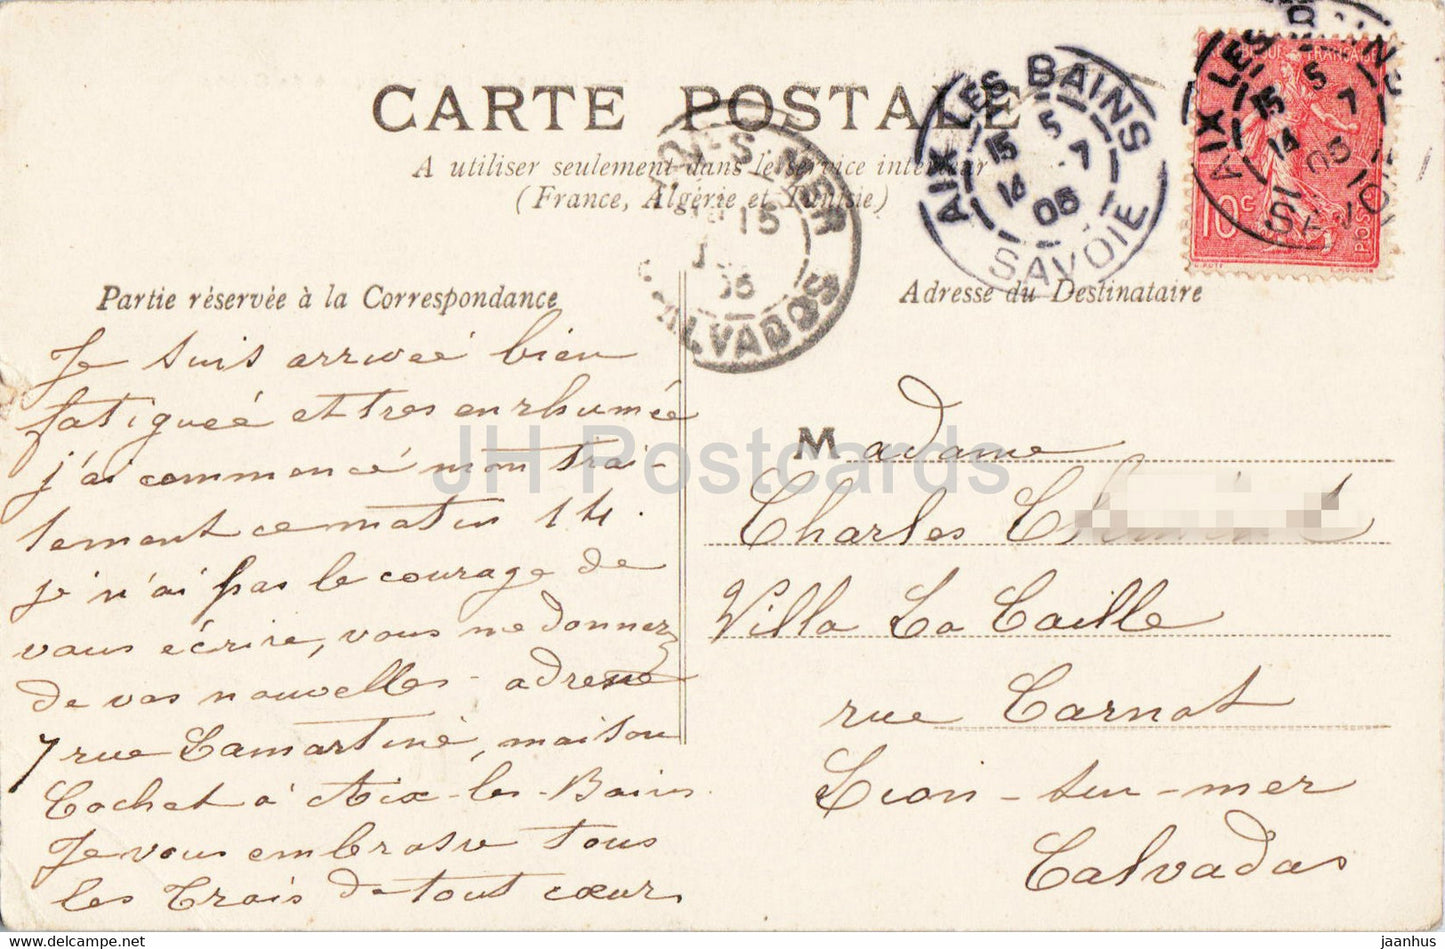 CARTE POSTALE
A utiliser seulement dans le service intérieur
(France, Algérie et Tunisie)
AIX LES BAINS
15 5
14 7
06
SAVOIE
AIX LES BAINS
15 5
14 7
06
SAVOIE
FRANÇAISE
10 c
POSTES
S MER
15
06
CALVADOS
Partie réservée à la Correspondance
Adresse du Destinataire
Je suis arriveé bien
fatigueé et tres enrhumée
j'ai commencé mon trai-
tement ce matin 14.
je n'ai pas le courage de
vous écrire, vous me donnez
de vos nouvelles - adresse
7 rue Lamartine, maison
Cochet à Aix-les-Bains
Je vous embrasse tous
les trois de tout cœur
Madame
Charles
Villa La Caille
rue Carnot
Lion-sur-mer
Calvados
JH Postcards
jaanhus.com